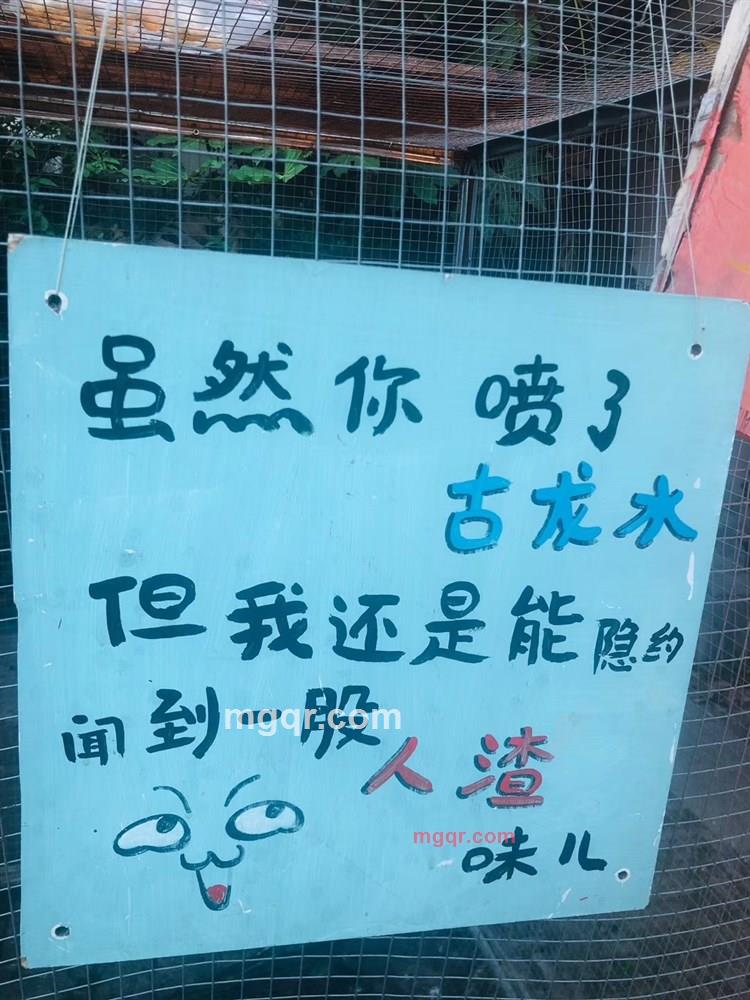 虽然你喷了
古龙水
但我还是能隐约
闻到一股
mgqr.com
人渣
mgqr.com
味儿